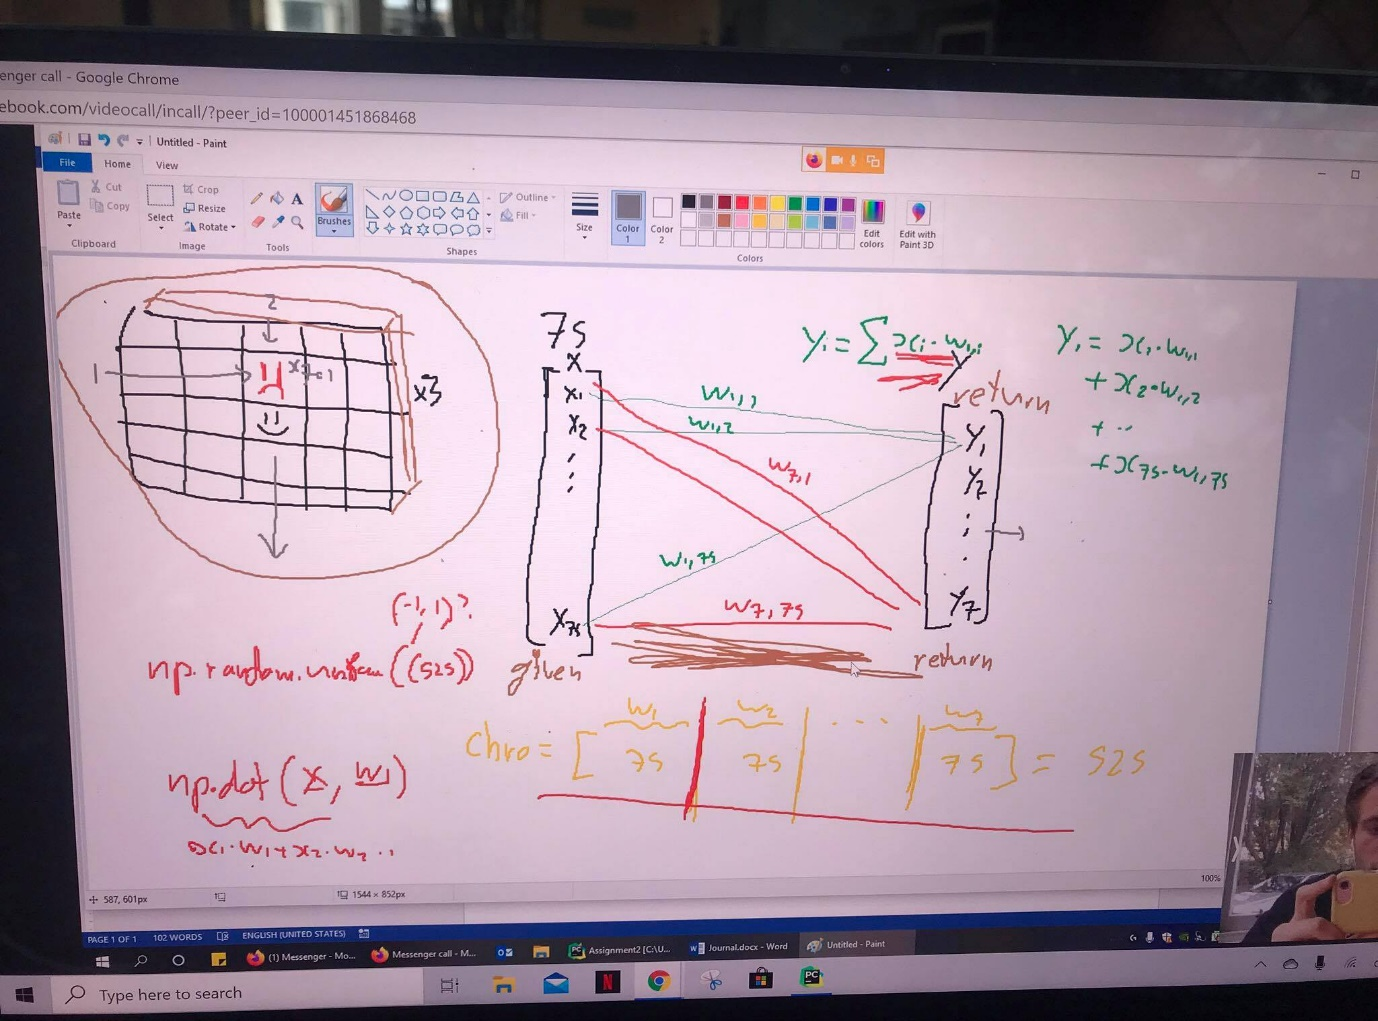 enger call - Google Chrome
ebook.com/videocall/incall/?peer_id=100001451868468
Untitled - Paint
File Home View
Paste
Cut
Copy
Clipboard
Select
Crop
Resize
Rotate
Image
A
Tools
Brushes
Shapes
Outline
Fill
Size
Color 1
Color 2
Colors
Edit colors
Edit with Paint 3D
2
1
x3
75
x
x1
x2
x75
given
w1,1
w1,2
w7,1
w1,75
w7,75
yi = Σ xi · w1,i
y
return
y1
y2
y7
return
y1 = x1 · w1,1
+ x2 · w1,2
+ ..
+ x75 - w1,75
(-1, 1)?
np.random.uniform((525))
np.dot(x, w1)
x1 · w1 + x2 · w2 ..
w1 w2 ... w7
Chro = [ 75 | 75 | | 75 ] = 525
587, 601px
1544 × 852px
100%
PAGE 1 OF 1 102 WORDS ENGLISH (UNITED STATES)
(1) Messenger - Mo...
Messenger call - M...
Assignment2 [C:\U...
Journal.docx - Word
Untitled - Paint
Type here to search